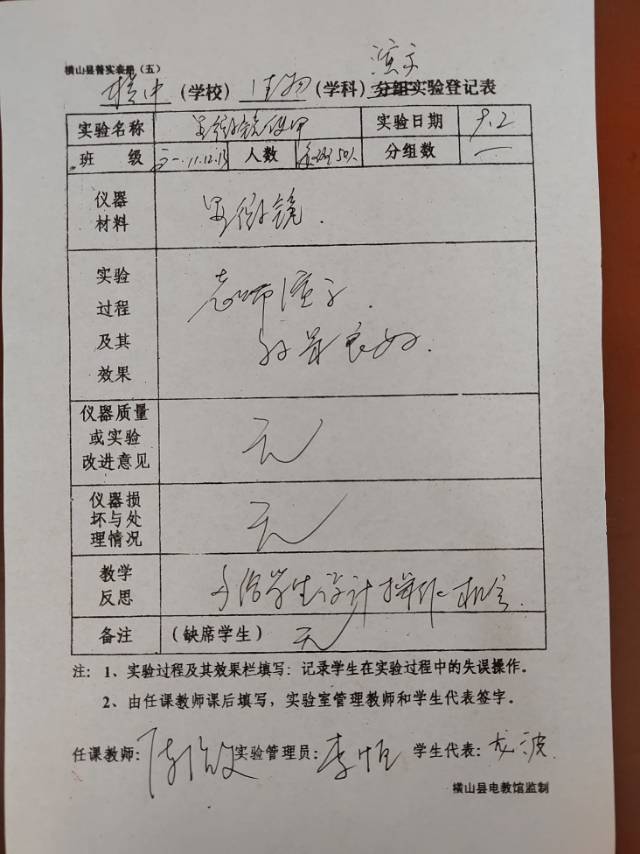 横山县普实表册（五）
演示
横中（学校）生物（学科）分组实验登记表
实验名称 显微镜使用 实验日期 9.2
班级 高一.11.12.13 人数 50人 分组数 一
仪器材料 显微镜.
实验过程及其效果 老师演示.
效果良好.
仪器质量或实验改进意见 无
仪器损坏与处理情况 无
教学反思 多给学生设计操作机会.
备注 （缺席学生） 无
注: 1、实验过程及其效果栏填写: 记录学生在实验过程中的失误操作。
2、由任课教师课后填写，实验室管理教师和学生代表签字。
任课教师: 实验管理员: 李恒 学生代表: 龙波
横山县电教馆监制